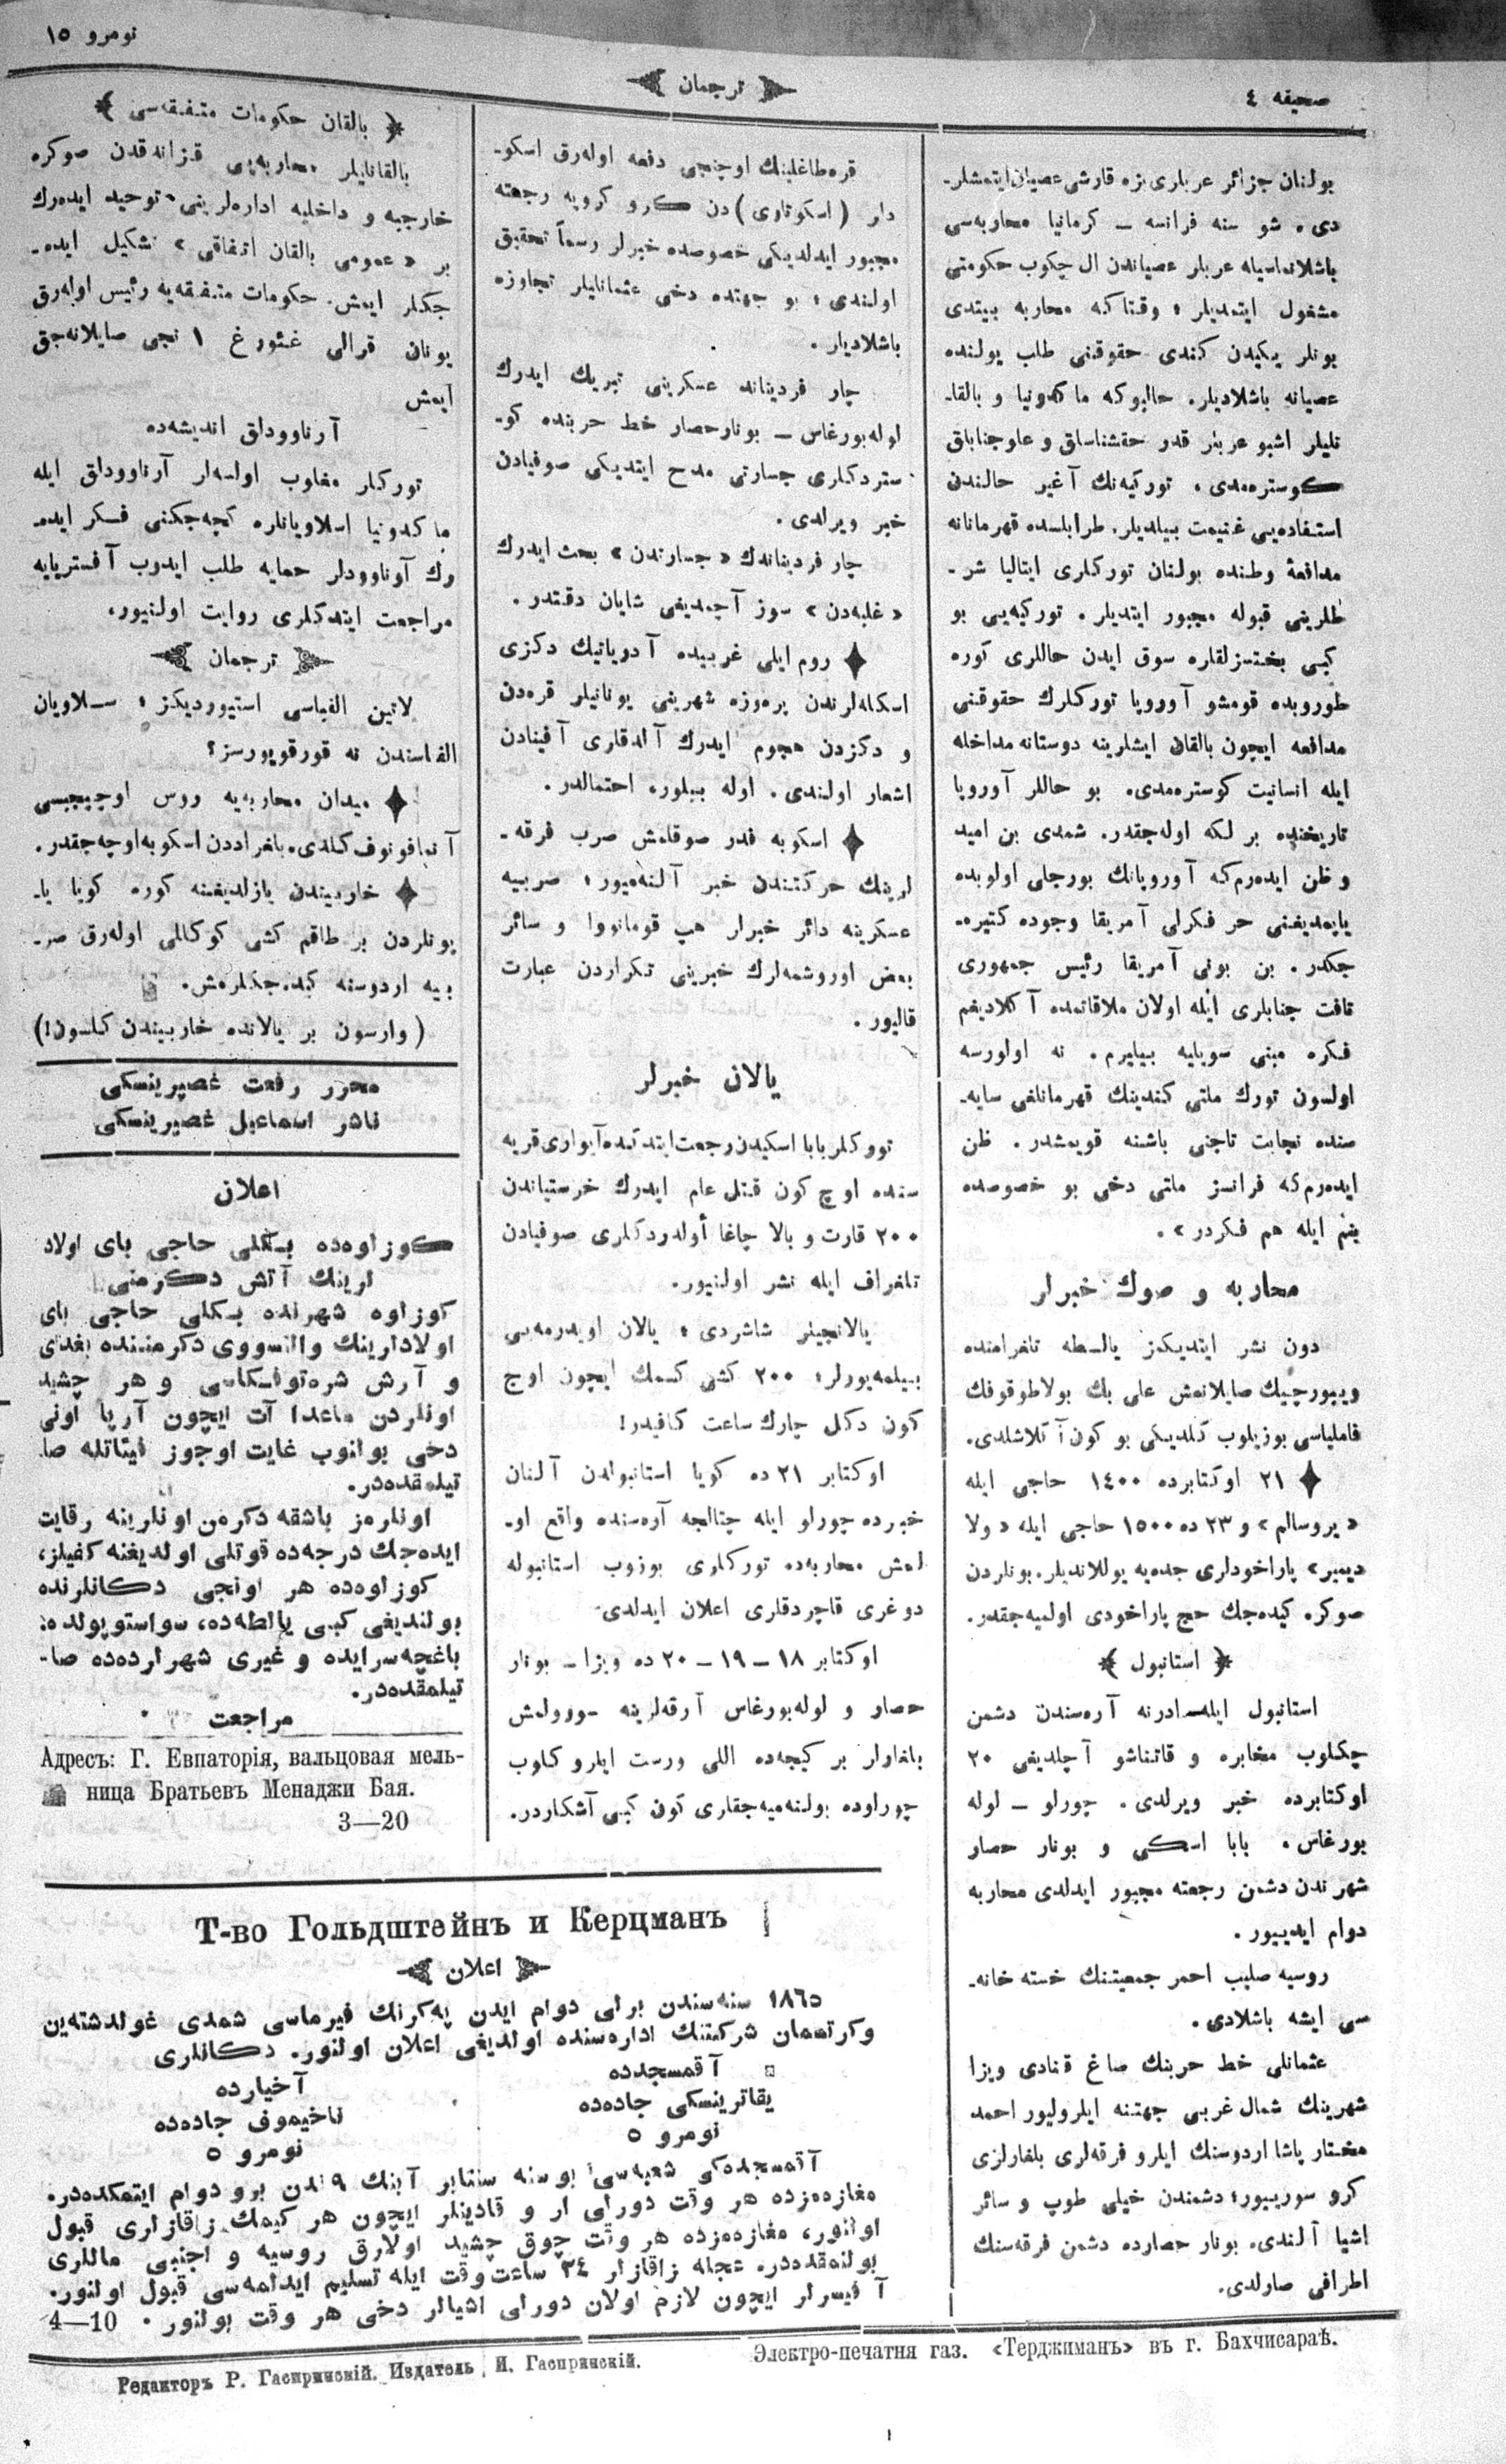 صحیفه ٤
ترجمان
نومرو ١٥
بولنان جزائر عربلری بزه قارشی عصیان ایتمشلر-
دی، شو سنه فرانسه — کرمانیا محاربه‌سی
باشلانماسیله عربلر عصیاندن ال چکوب حکومتی
مشغول ایتمدیلر؛ وقتاکه محاربه بیتدی
بونلر یکیدن کندی حقوقنی طلب یولنده
عصیانه باشلادیلر. حالبوکه ماکدونیا و بالقا-
نلیلر اشبو عربلر قدر حقشناسلق و علوجنابلق
کوسترەمدی، تورکیه‌نك آغیر حالندن
استفاده‌یی غنیمت بیلدیلر. طرابلسده قهرمانانه
مدافعهٔ وطنده بولنان تورکلری ایتالیا شر-
طلرینی قبوله مجبور ایتدیلر. تورکیه‌یی بو
کبی بختسزلقلره سوق ایدن حاللری کوره
طوروبده قومشو آوروپا تورکلرك حقوقنی
مدافعه ایچون بالقان ایشلرینه دوستانه مداخله
ایله انسانیت کوسترەمدی. بو حاللر آوروپا
تاریخنده بر لکه اوله‌جقدر. شمدی بن امید
و ظن ایدەرم‌که آوروپانك بورجلی اولوبده
یاپمدیغنی حر فکرلی آمریقا وجوده کتیرە-
جکدر. بن بونی آمریقا رئیس جمهوری
تافت جنابلری ایله اولان ملاقاتمده آکلادیغم
فکره مبنی سویلیه بیلیرم. نه اولورسه
اولسون تورك ملتی کندینك قهرمانلغی سایه-
سنده نجابت تاجنی باشنه قویمشدر. ظن
ایدەرم‌که فرانسز ملتی دخی بو خصوصده
بنم ایله هم فکردر».
محاربه و صوك خبرلر
دون نشر ایتدیکمز یالطه تلغرامنده
ویبورچیك صایلانمش علی بك بولاطوقوفك
فاملیاسی بوزیلوب کلدیکی بو کون آکلاشلدی.
٢١ اوکتابرده ١٤٠٠ حاجی ایله
«یروسالم» و ٢٣ ده ١٥٠٠ حاجی ایله «ولا
دیمیر» پاراخودلری جده‌یه یوللاندیلر. بونلردن
صوکره کیده‌جك حج پاراخودی اولمیه‌جقدر.
استانبول
استانبول ایله ادرنه آرەسندن دشمن
چکلوب مخابره و قاتناشو آچلدیغی ٢٠
اوکتابرده خبر ویرلدی. چورلو — لوله
بورغاس، بابا اسکی و بونار حصار
شهرندن دشمن رجعته مجبور ایدلدی محاربه
دوام ایدییور.
روسیه صلیب احمر جمعیتنك خسته خانه-
سی ایشه باشلادی.
عثمانلی خط حربنك صاغ قنادی ویزا
شهرینك شمال غربی جهتنه ایلرولیور احمد
مختار پاشا اردوسنك ایلرو فرقه‌لری بلغارلری
کرو سورییور؛ دشمندن خیلی طوپ و سائر
اشیا آلندی. بونار حصارده دشمن فرقه‌سنك
اطرافی صارلدی.
قره‌طاغلینك اوچنجی دفعه اوله‌رق اسکو-
دار (اسکوتاری) دن کرو کروبه رجعته
مجبور ایدلدیکی خصوصده خبرلر رسماً تحقیق
اولندی؛ بو جهتده دخی عثمانلیلر تجاوزه
باشلادیلر.
چار فردیناند عسکرینی تبریك ایدرك
لوله‌بورغاس — بونارحصار خط حربنده کو-
ستردکلری جسارتی مدح ایتدیکی صوفیادن
خبر ویرلدی.
چار فردیناندك «جسارتدن» بحث ایدرك
«غلبه‌دن» سوز آچمدیغی شایان دقتدر.
روم ایلی غربیده آدریاتیك دکزی
اسکله‌لرندن پره‌وزه شهرینی یونانیلر قره‌دن
و دکزدن هجوم ایدرك آلدقلری آفینادن
اشعار اولندی. اوله بیلور، احتمالدر.
اسکوبه قدر صوقلمش صرب فرقه-
لرینك حرکتندن خبر آلنەمیور؛ صربیه
عسکرینه دائر خبرلر هپ قومانووا و سائر
بعض اوروشمه‌لرك خبرینی تکراردن عبارت
قالیور.
یالان خبرلر
تورکلر بابا اسکیدن رجعت ایتدکده آیواری قریه
سنده اوچ کون قتل عام ایدرك خرستیاندن
٢٠٠ قارت و بالا چاغا اولدردکلری صوفیادن
تلغراف ایله نشر اولنیور.
یالانچیلر شاشردی؛ یالان اویدرمه‌یی
بیلمه‌یورلر؛ ٢٠٠ کشی کسمك ایچون اوچ
کون دکل چارك ساعت کافیدر!
اوکتابر ٢١ ده کویا استانبولدن آلنان
خبرده چورلو ایله چتالجه آرەسنده واقع او-
لمش محاربه‌ده تورکلری بوزوب استانبوله
دوغری قاچردقلری اعلان ایدلدی.
اوکتابر ١٨ — ١٩ — ٢٠ ده ویزا — بونار
حصار و لوله‌بورغاس آرقه‌لرینه سورولمش
بلغارلر بر کیجه‌ده اللی ورست ایلرو کلوب
چورلوده بولنەمیه‌جقلری کون کبی آشکاردر.
بالقان حکومات متفقه‌سی
بالقانلیلر محاربه‌یی قزانه‌قدن صوکره
خارجیه و داخلیه اداره‌لرینی توحید ایدەرك
بر «عمومی بالقان اتفاقی» تشکیل ایدە-
جکلر ایمش. حکومات متفقه‌یه رئیس اوله‌رق
یونان قرالی غئورغ ١ نجی صایلانه‌جق
ایمش
آرناوودلق اندیشه‌ده
تورکلر مغلوب اولسه‌لر آرناوودلق ایله
ماکدونیا اسلاویانلره کچه‌جکنی فکر ایدە-
رك آرناوودلر حمایه طلب ایدوب آفستریایه
مراجعت ایتدکلری روایت اولنیور.
ترجمان
لاتین الفباسی استیوردیکز؛ سلاویان
الفباسندن نه قورقویورسز؟
میدان محاربه‌یه روس اوچیجیسی
آغافونوف کلدی. بلغراددن اسکوبه اوچه‌جقدر.
خاربیندن یازلدیغنه کوره کویا یا-
پونلردن بر طاقم کشی کوکللی اوله‌رق صر-
بیه اردوسنه کیده‌جکلرمش.
(وارسون بر یالانده خاربیندن کلسون!)
محرر رفعت غصپرینسکی
ناشر اسماعیل غصپرینسکی
اعلان
کوزلوەده بکلی حاجی بای اولاد
لرینك آتش دکرمنی
کوزلوه شهرنده بکلی حاجی بای
اولادلرینك والتسووی دکرمننده بغدای
و آرش شرەتوفسکاسی و هر چشید
اونلردن ماعدا آت ایچون آرپا اونی
دخی بولنوب غایت اوجوز فیئاتله صا-
تیلمقده‌در.
اونلرمز باشقه دکرمن اونلرینه رقابت
ایده‌جك درجه‌ده قوتلی اولدیغنه کفیلز،
کوزلوەده هر اونجی دکانلرنده
بولندیغی کبی یالطه‌ده، سواستوپولده،
باغچه‌سرایده و غیری شهرلرده‌ده صا-
تیلمقده‌در.
مراجعت
Адресъ: Г. Евпаторія, вальцовая мель-
ница Братьевъ Менаджи Бая.
3—20
Т-во Гольдштейнъ и Керцманъ
اعلان
١٨٦٥ سنه‌سندن برلی دوام ایدن په‌کرنك فیرماسی شمدی غولدشته‌ین
وکارتسمان شرکتنك اداره‌سنده اولدیغی اعلان اولنور. دکانلری
آقمسجدده
یقاترینسکی جاده‌ده
نومرو ٥
آخیارده
ناخیموف جاده‌ده
نومرو ٥
آقمسجدده‌کی شعبه‌سی بو سنه سنتابر آینك ٩ ندن برو دوام ایتمکده‌در.
مغازه‌مزده هر وقت دورلی ار و قادینلر ایچون هر کیمك زاقازلری قبول
اولنور، مغازه‌مزده هر وقت چوق چشید اولارق روسیه و اجنبی ماللری
بولنمقده‌در. عجله زاقازلر ٢٤ ساعت وقت ایله تسلیم ایدلمه‌سی قبول اولنور.
آفیسرلر ایچون لازم اولان دورلی اشیالر دخی هر وقت بولنور. 4—10
Редакторъ Р. Гаспринскій. Издатель И. Гаспринскій.
Электро-печатня газ. «Терджиманъ» въ г. Бахчисараѣ.